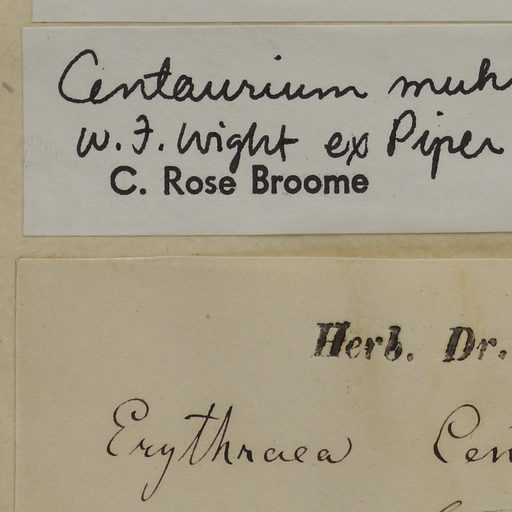 Centaurium muh
W. F. Wight ex Piper
C. Rose Broome
Herb. Dr.
Erythraea Cen